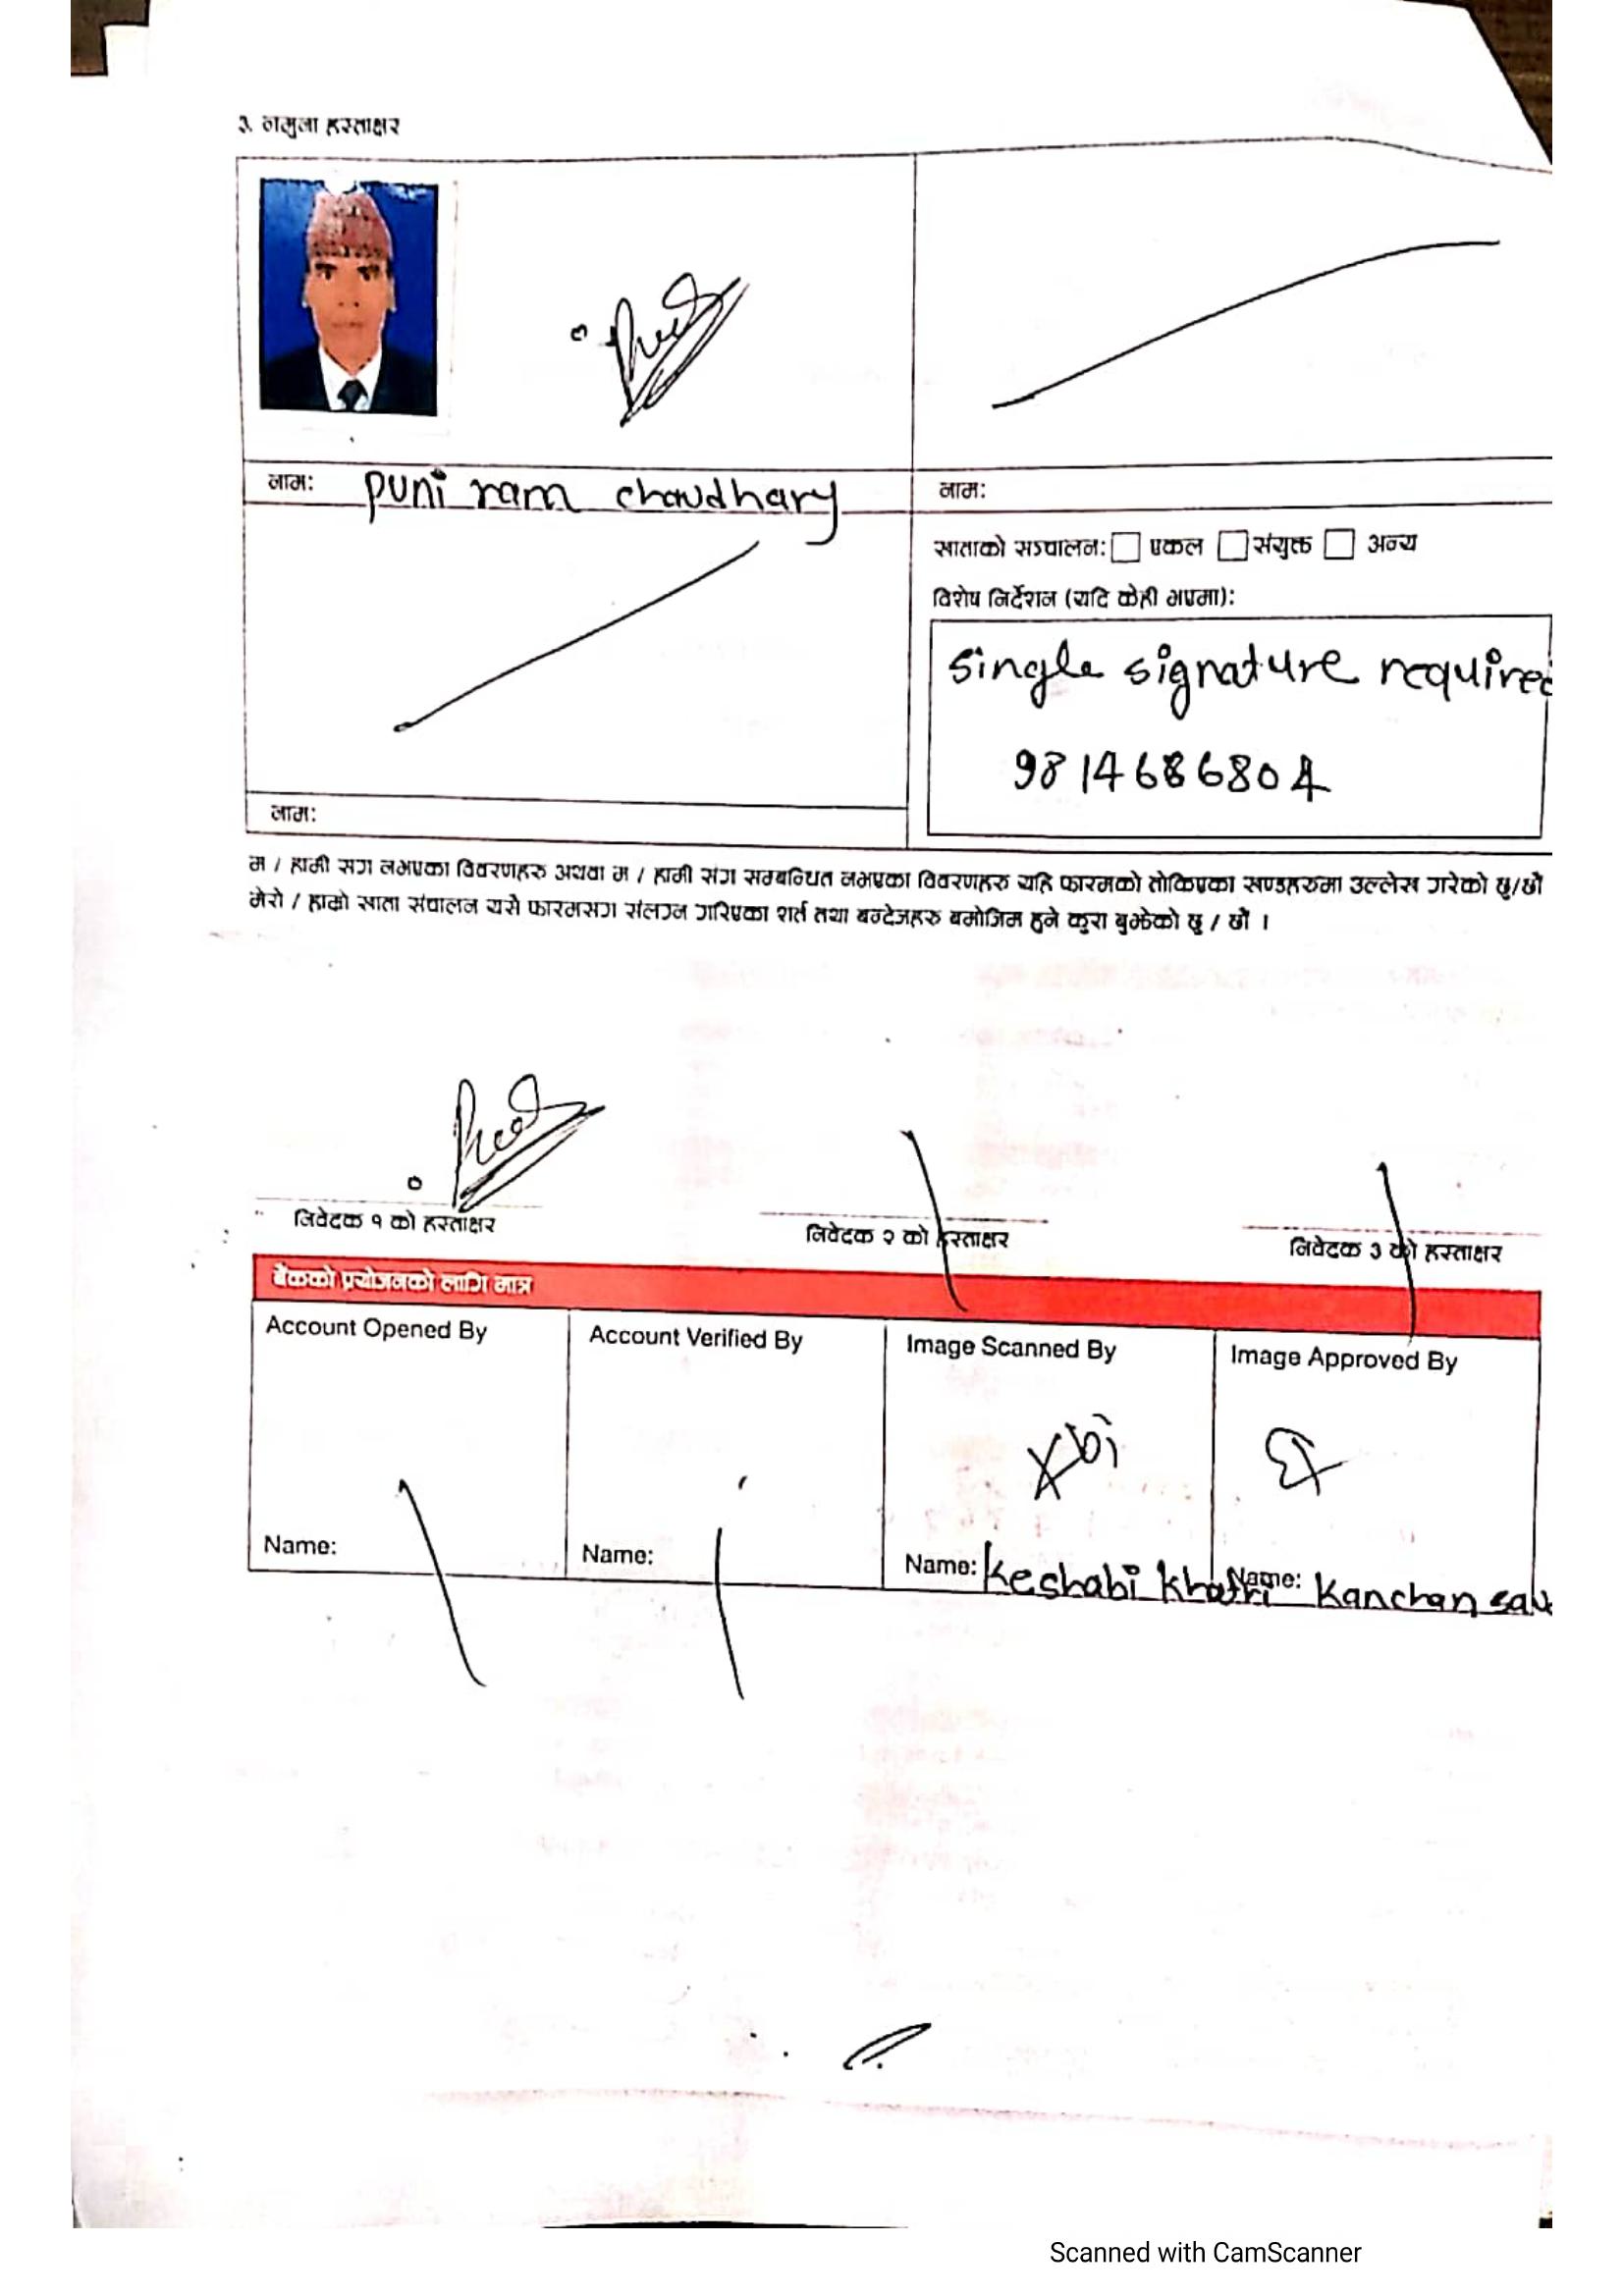 ३. नमुना हस्ताक्षर
नाम: puni ram chaudhary
नाम:
खाताको सञ्चालन: एकल संयुक्त अन्य
विशेष निर्देशन (यदि केही भएमा):
single signature required
9814686804
नाम:
म / हामी सग नभएका विवरणहरु अथवा म / हामी संग सम्बन्धित नभएका विवरणहरु यहि फारमको तोकिएका खण्डहरुमा उल्लेख गरेको छु/छौं
मेरो / हाम्रो खाता संचालन यसै फारमसग संलग्न गरिएका शर्त तथा बन्देजहरु बमोजिम हुने कुरा बुझेको छु / छौं ।
निवेदक १ को हस्ताक्षर
निवेदक २ को हस्ताक्षर
निवेदक ३ को हस्ताक्षर
बैंकको प्रयोजनको लागि मात्र
Account Opened By
Account Verified By
Image Scanned By
Image Approved By
Name:
Name:
Name: Keshabi khatri
Name: Kanchan
Scanned with CamScanner